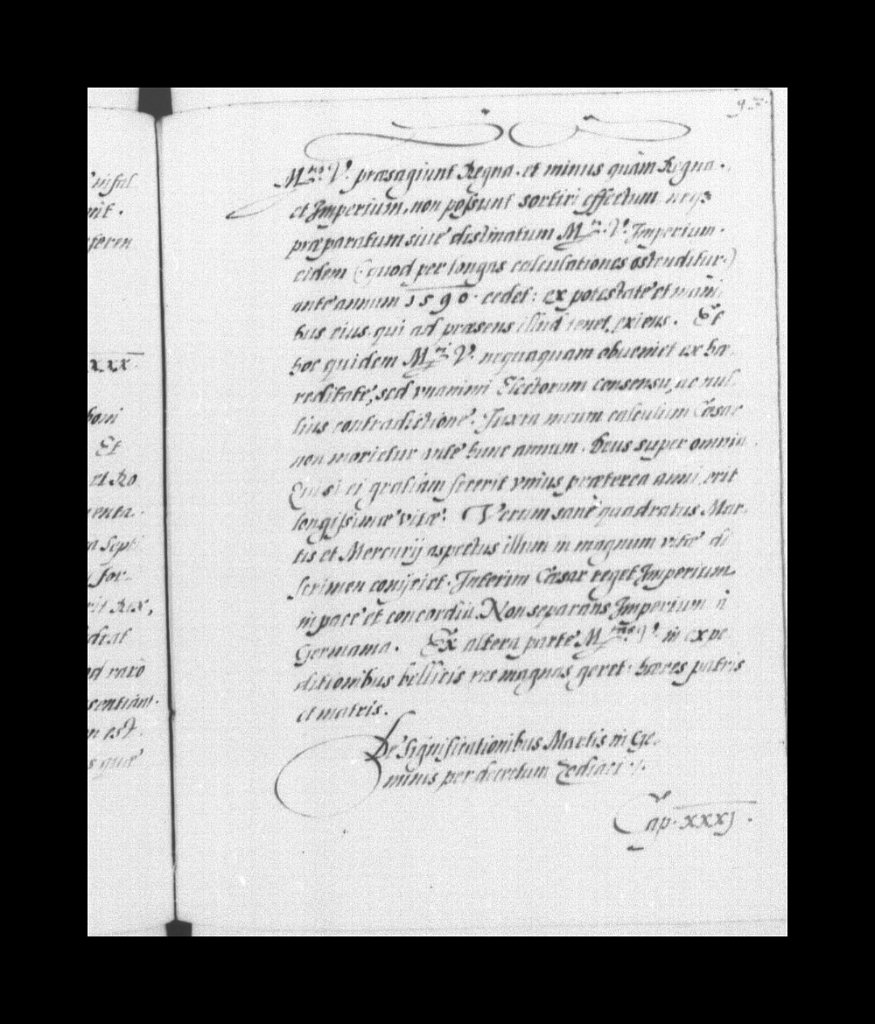 93.
Mti V. præsagiunt Regna. et minus quàm Regna.
et Imperium, non possunt sortiri effectum neqз
præparatum siue destinatum Mti V. Imperium.
eidem (quod per longas calculationes ostenditur)
ante annum 1590. cedet: ex potestate et mani
bus eius qui ad præsens illud tenet, exiens. Et
hoc quidem Mti V. nequaquam obueniet ex hæ
reditate, sed vnanimi Electorum consensu, ac nul
lius contradictione. Juxta meum calculum Cæsar
non morietur ante hunc annum. Deus super omnia
si ei gratiam fecerit vnius præterea anni, erit
longissimæ vitæ. Verum sanè quadratus Mar
tis et Mercurij aspectus illum in magnum vitæ di
scrimen conijciet. Interim Cæsar reget Imperium
in pace et concordia. Non separans Imperium à
Germania. Ex altera parte Mtas V. in expe
ditionibus bellicis res magnas geret. hæres patris
et matris.
De significationibus Martis in Ge.
minis per decretum Zodiaci
Cap. xxxj.
infal
nit.
feren
xxx.
boni
Et
et Ro
menta.
Sept
for.
rit Rex,
dicat
od raro
sentiant.
m est.
s quæ